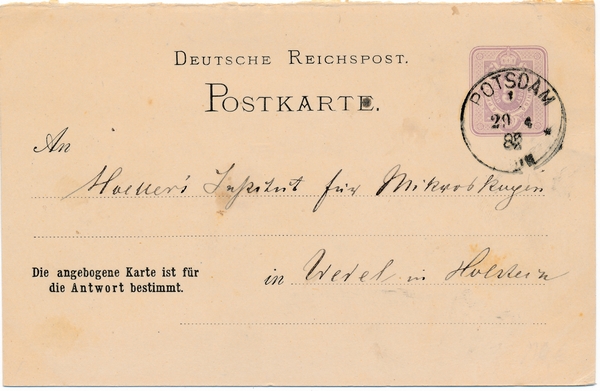 DEUTSCHE REICHSPOST.
POSTKARTE.
POTSDAM
1
29 4
An
Moeller's Institut für Mikroskopie
Die angebogene Karte ist für
die Antwort bestimmt.
in Wedel in Holstein